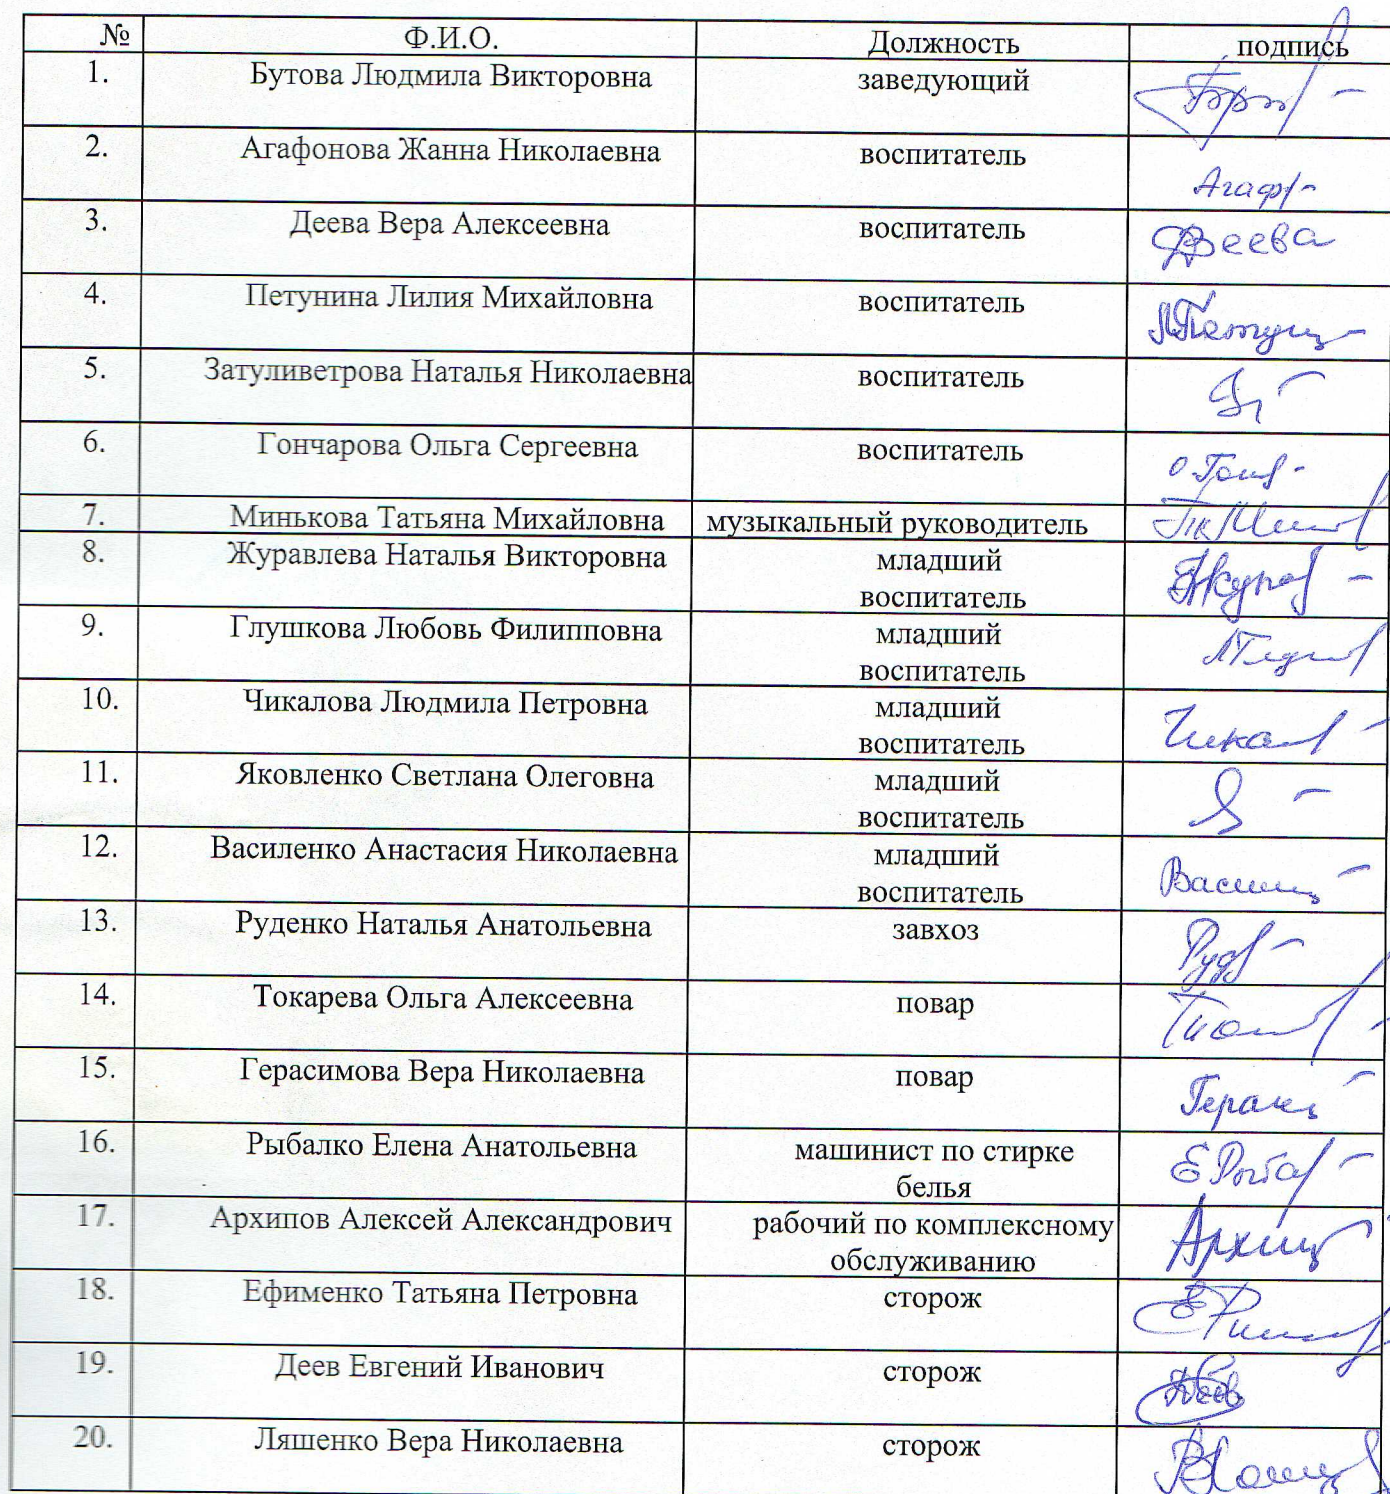 № Ф.И.О. Должность подпись
1. Бутова Людмила Викторовна заведующий
2. Агафонова Жанна Николаевна воспитатель
Агаф
3. Деева Вера Алексеевна воспитатель Деева
4. Петунина Лилия Михайловна воспитатель
5. Затуливетрова Наталья Николаевна воспитатель
6. Гончарова Ольга Сергеевна воспитатель
7. Минькова Татьяна Михайловна музыкальный руководитель
8. Журавлева Наталья Викторовна младший
воспитатель
9. Глушкова Любовь Филипповна младший
воспитатель
10. Чикалова Людмила Петровна младший
воспитатель
11. Яковленко Светлана Олеговна младший
воспитатель
12. Василенко Анастасия Николаевна младший
воспитатель
13. Руденко Наталья Анатольевна завхоз
14. Токарева Ольга Алексеевна повар
15. Герасимова Вера Николаевна повар
16. Рыбалко Елена Анатольевна машинист по стирке
белья
17. Архипов Алексей Александрович рабочий по комплексному
обслуживанию
18. Ефименко Татьяна Петровна сторож
19. Деев Евгений Иванович сторож
20. Ляшенко Вера Николаевна сторож